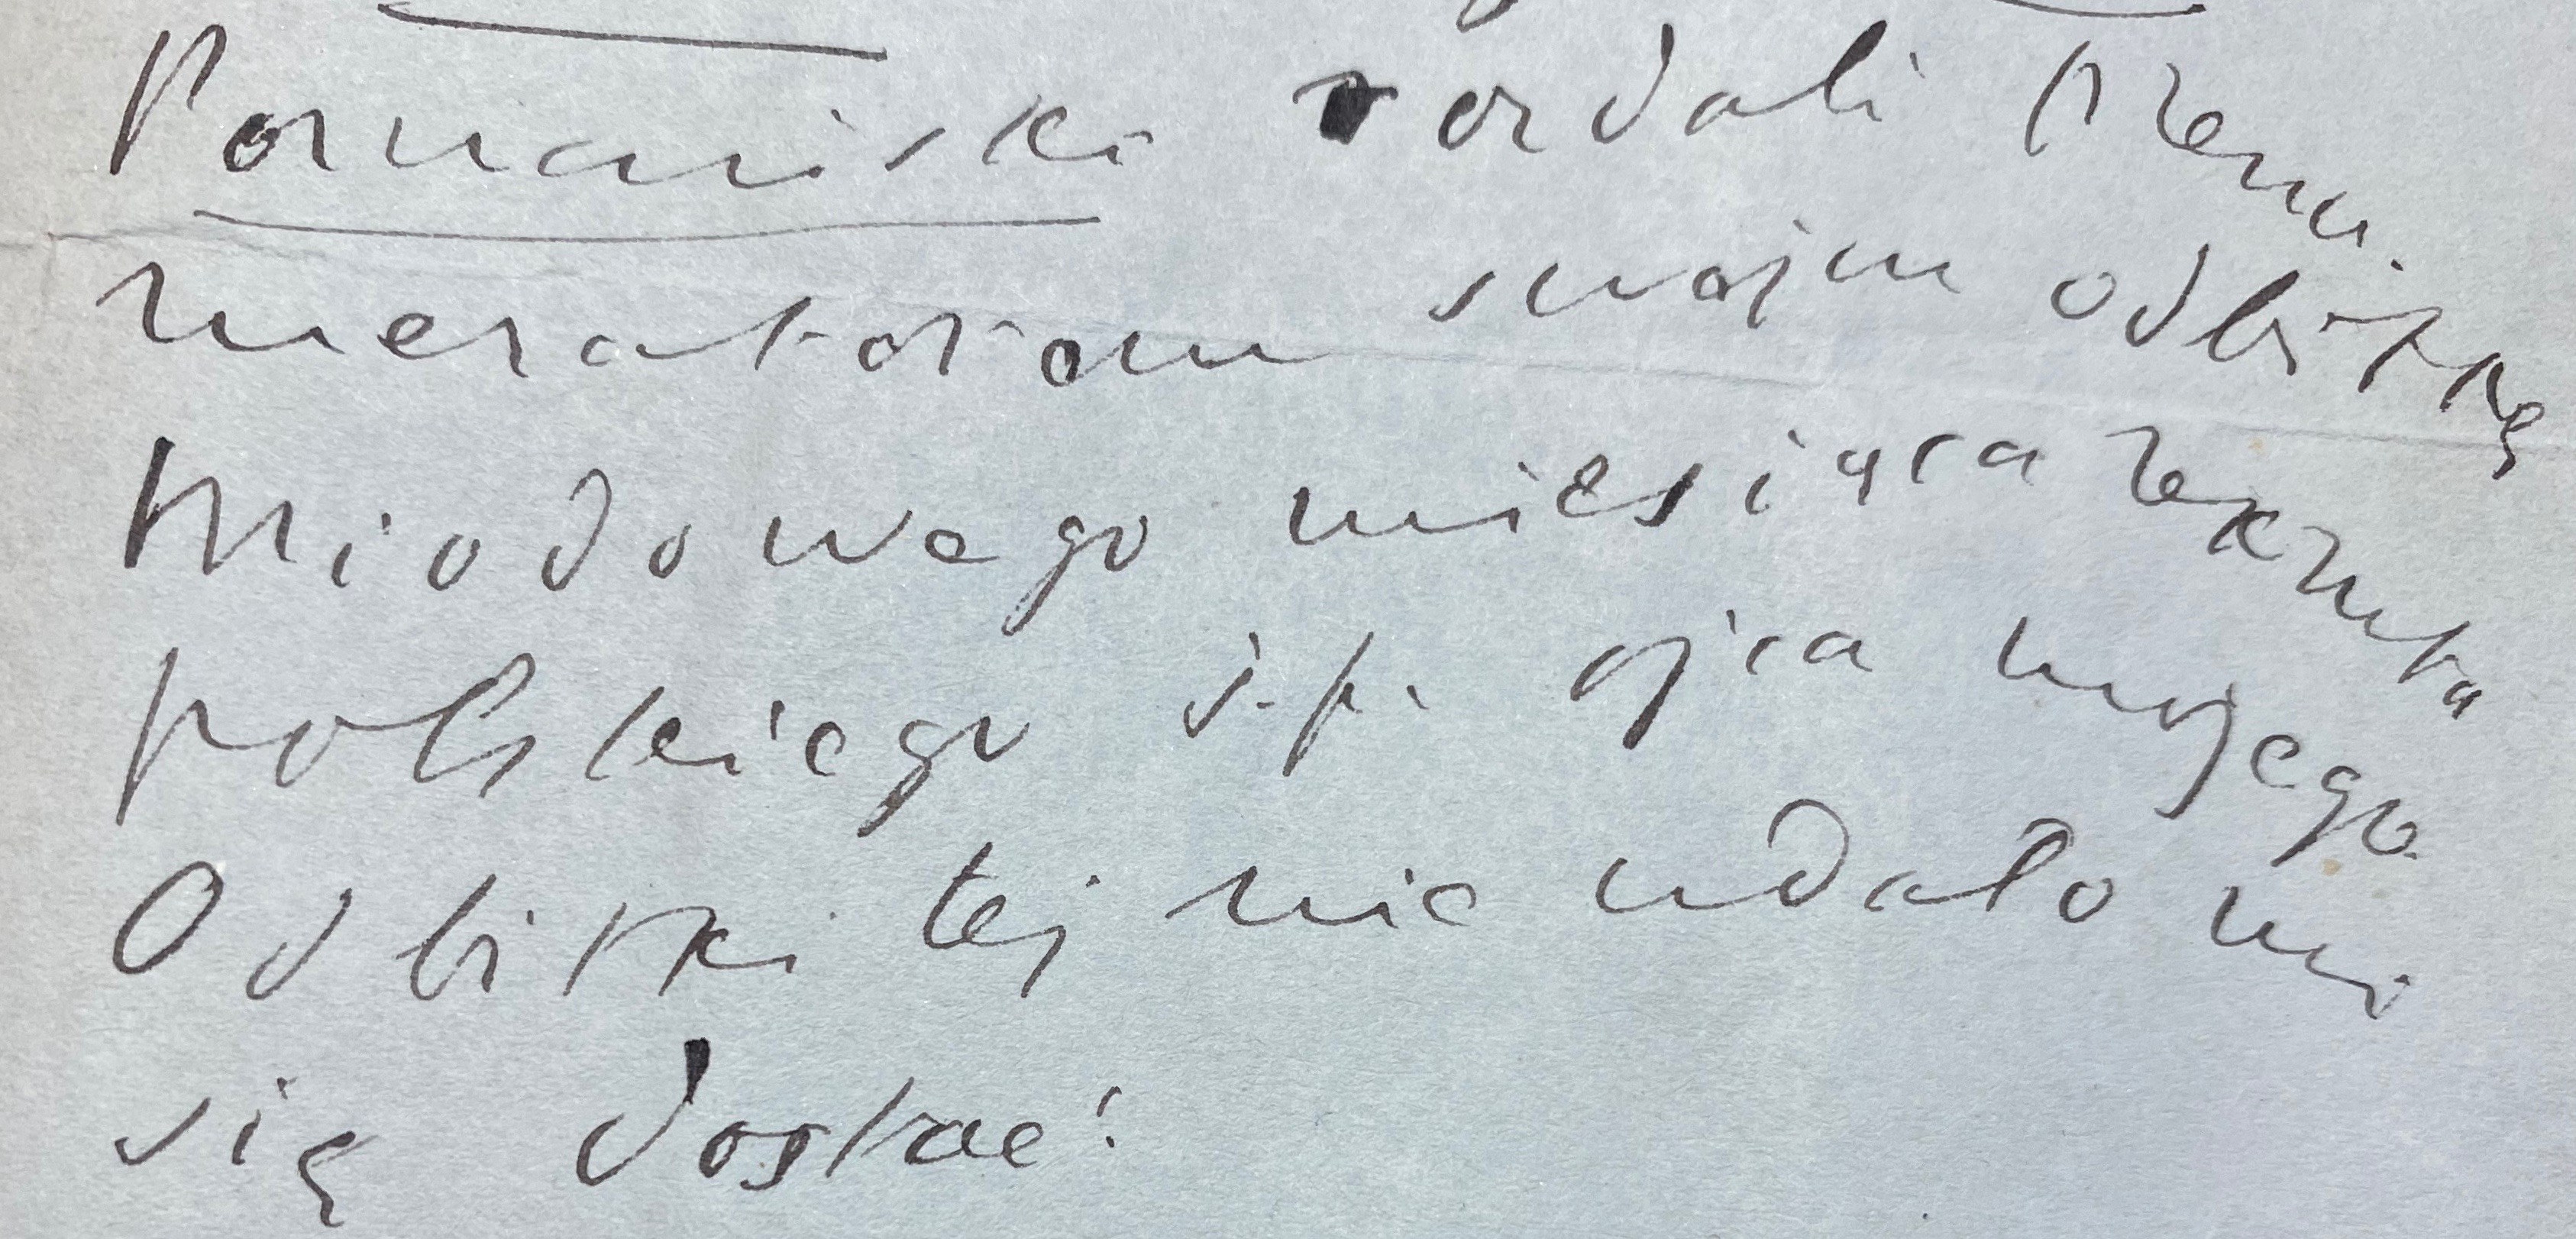 Poznański rozdali prenu-
meratorom swojm odbitkę
Miodowego miesiąca zeszyta
polskiego ś. p. ojca mojego.
Odbitki tej nie udało mi
się dostać!